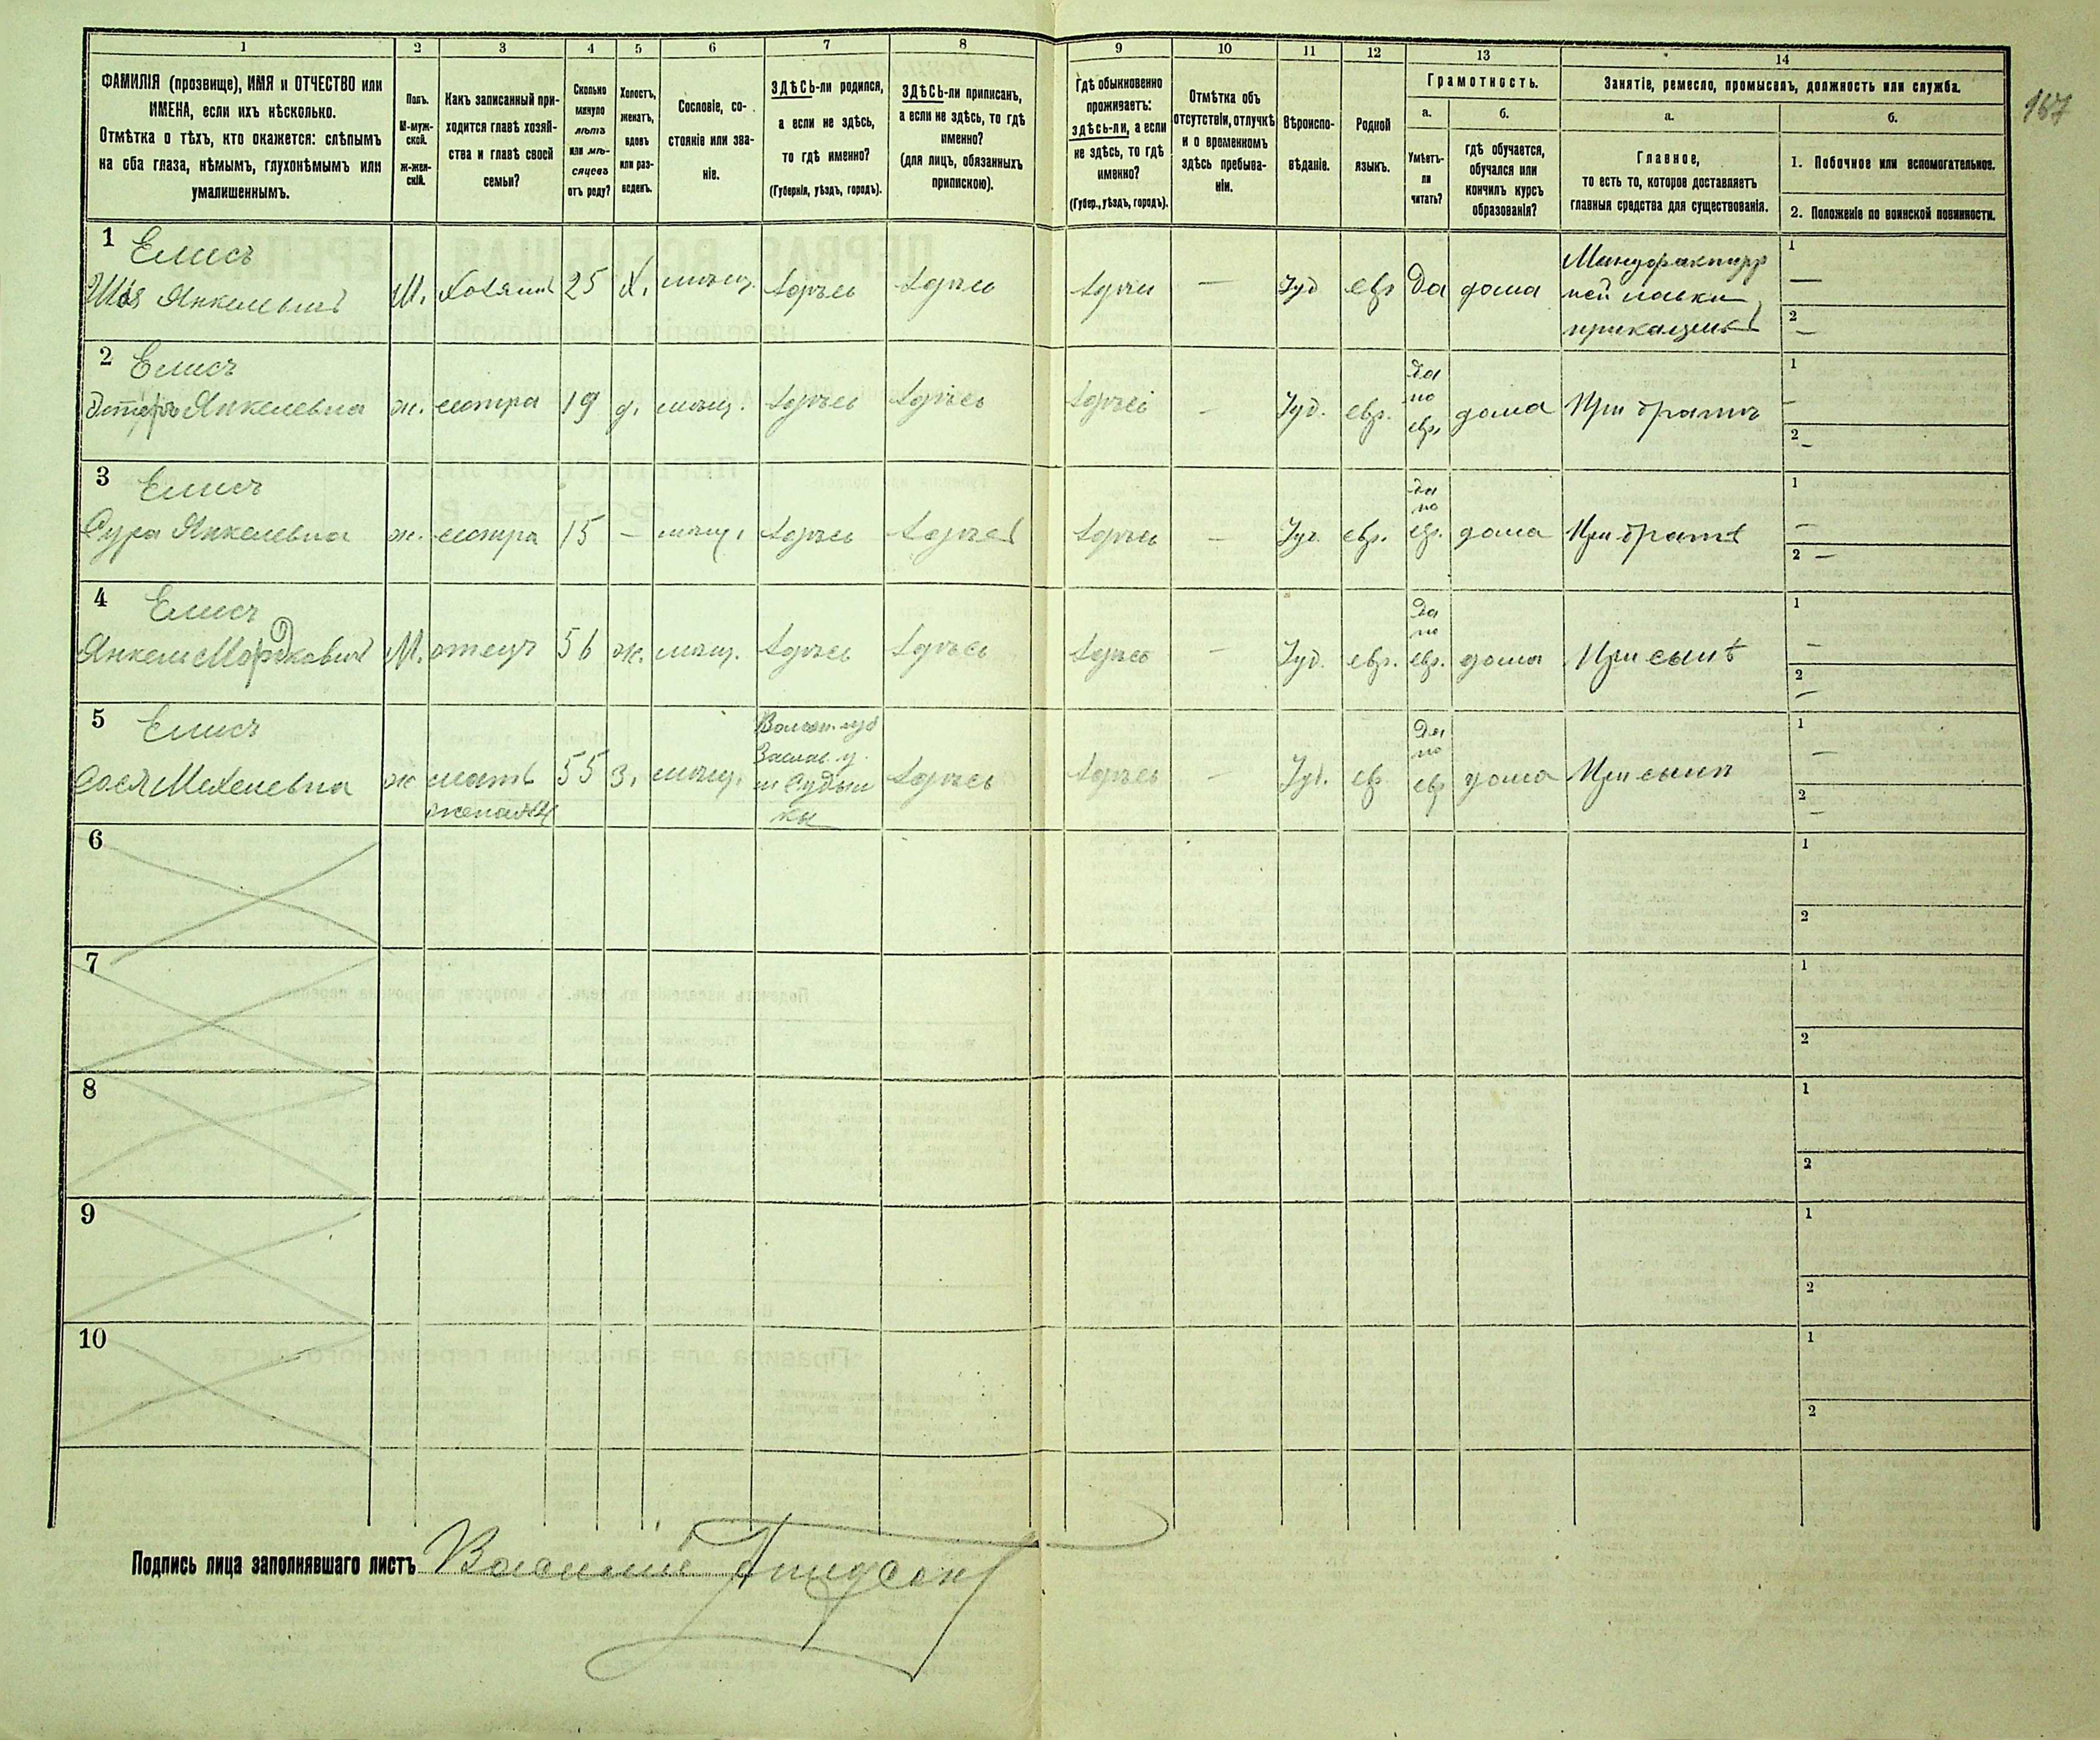 1 2 3 4 5 6 7 8 9 10 11 12 13 14
ФАМИЛІЯ (прозвище), ИМЯ и ОТЧЕСТВО или
ИМЕНА, если ихъ нѣсколько.
Отмѣтка о тѣхъ, кто окажется: слѣпымъ
на оба глаза, нѣмымъ, глухонѣмымъ или
умалишеннымъ.
Полъ.
М-муж-
ской.
Ж-жен-
скій.
Какъ записанный при-
ходится главѣ хозяй-
ства и главѣ своей
семьи?
Сколько
минуло
лѣтъ
или мѣ-
сяцевъ
отъ роду?
Холостъ,
женатъ,
вдовъ
или раз-
веденъ.
Сословіе, со-
стояніе или зва-
ніе.
ЗДѢСЬ-ли родился,
а если не здѣсь,
то гдѣ именно?
(Губернія, уѣздъ, городъ).
ЗДѢСЬ-ли приписанъ,
а если не здѣсь, то гдѣ
именно?
(для лицъ, обязанныхъ
припискою).
Гдѣ обыкновенно
проживаетъ:
здѣсь-ли, а если
не здѣсь, то гдѣ
именно?
(Губер., уѣздъ, городъ).
Отмѣтка объ
отсутствіи, отлучкѣ
и о временномъ
здѣсь пребыва-
ніи.
Вѣроиспо-
вѣданіе.
Родной
языкъ.
Грамотность.
а.
Умѣетъ-
ли
читать?
б.
гдѣ обучается,
обучался или
кончилъ курсъ
образованія?
Занятіе, ремесло, промыселъ, должность или служба.
а.
Главное,
то есть то, которое доставляетъ
главныя средства для существованія.
б.
1. Побочное или вспомогательное.
2. Положеніе по воинской повинности.
167
1 Елисъ
Шая Янкелевичъ М. хозяинъ 25 х. мѣщ. здѣсь здѣсь здѣсь — Іуд евр да дома
Мануфактур
ной лавки
прикащикъ
1 —
2 —
2 Елисъ
Янкелевна ж. сестра 19 д. мѣщ. здѣсь здѣсь здѣсь — Іуд. евр. да
по
евр. дома При братѣ
1 —
2 —
3 Елисъ
Сура Янкелевна ж. сестра 15 — мѣщ. здѣсь здѣсь здѣсь — Іуд. евр. да
по
евр. дома При братѣ
1 —
2 —
4 Елисъ
Янкель Мордковичъ М. отецъ 56 ж. мѣщ. здѣсь здѣсь здѣсь — Іуд. евр. да
по
евр. дома При сынѣ
1 —
2 —
5 Елисъ
Сося Мехелевна ж мать
жена №4
55 з. мѣщ.
Волын. губ
Заслав. у.
м Судил
ки
здѣсь здѣсь — Іуд. евр. да
по
евр дома При сынѣ
1 —
2 —
6
1
2
7
1
2
8
1
2
9
1
2
10
1
2
Подпись лица заполнявшаго листъ Василій